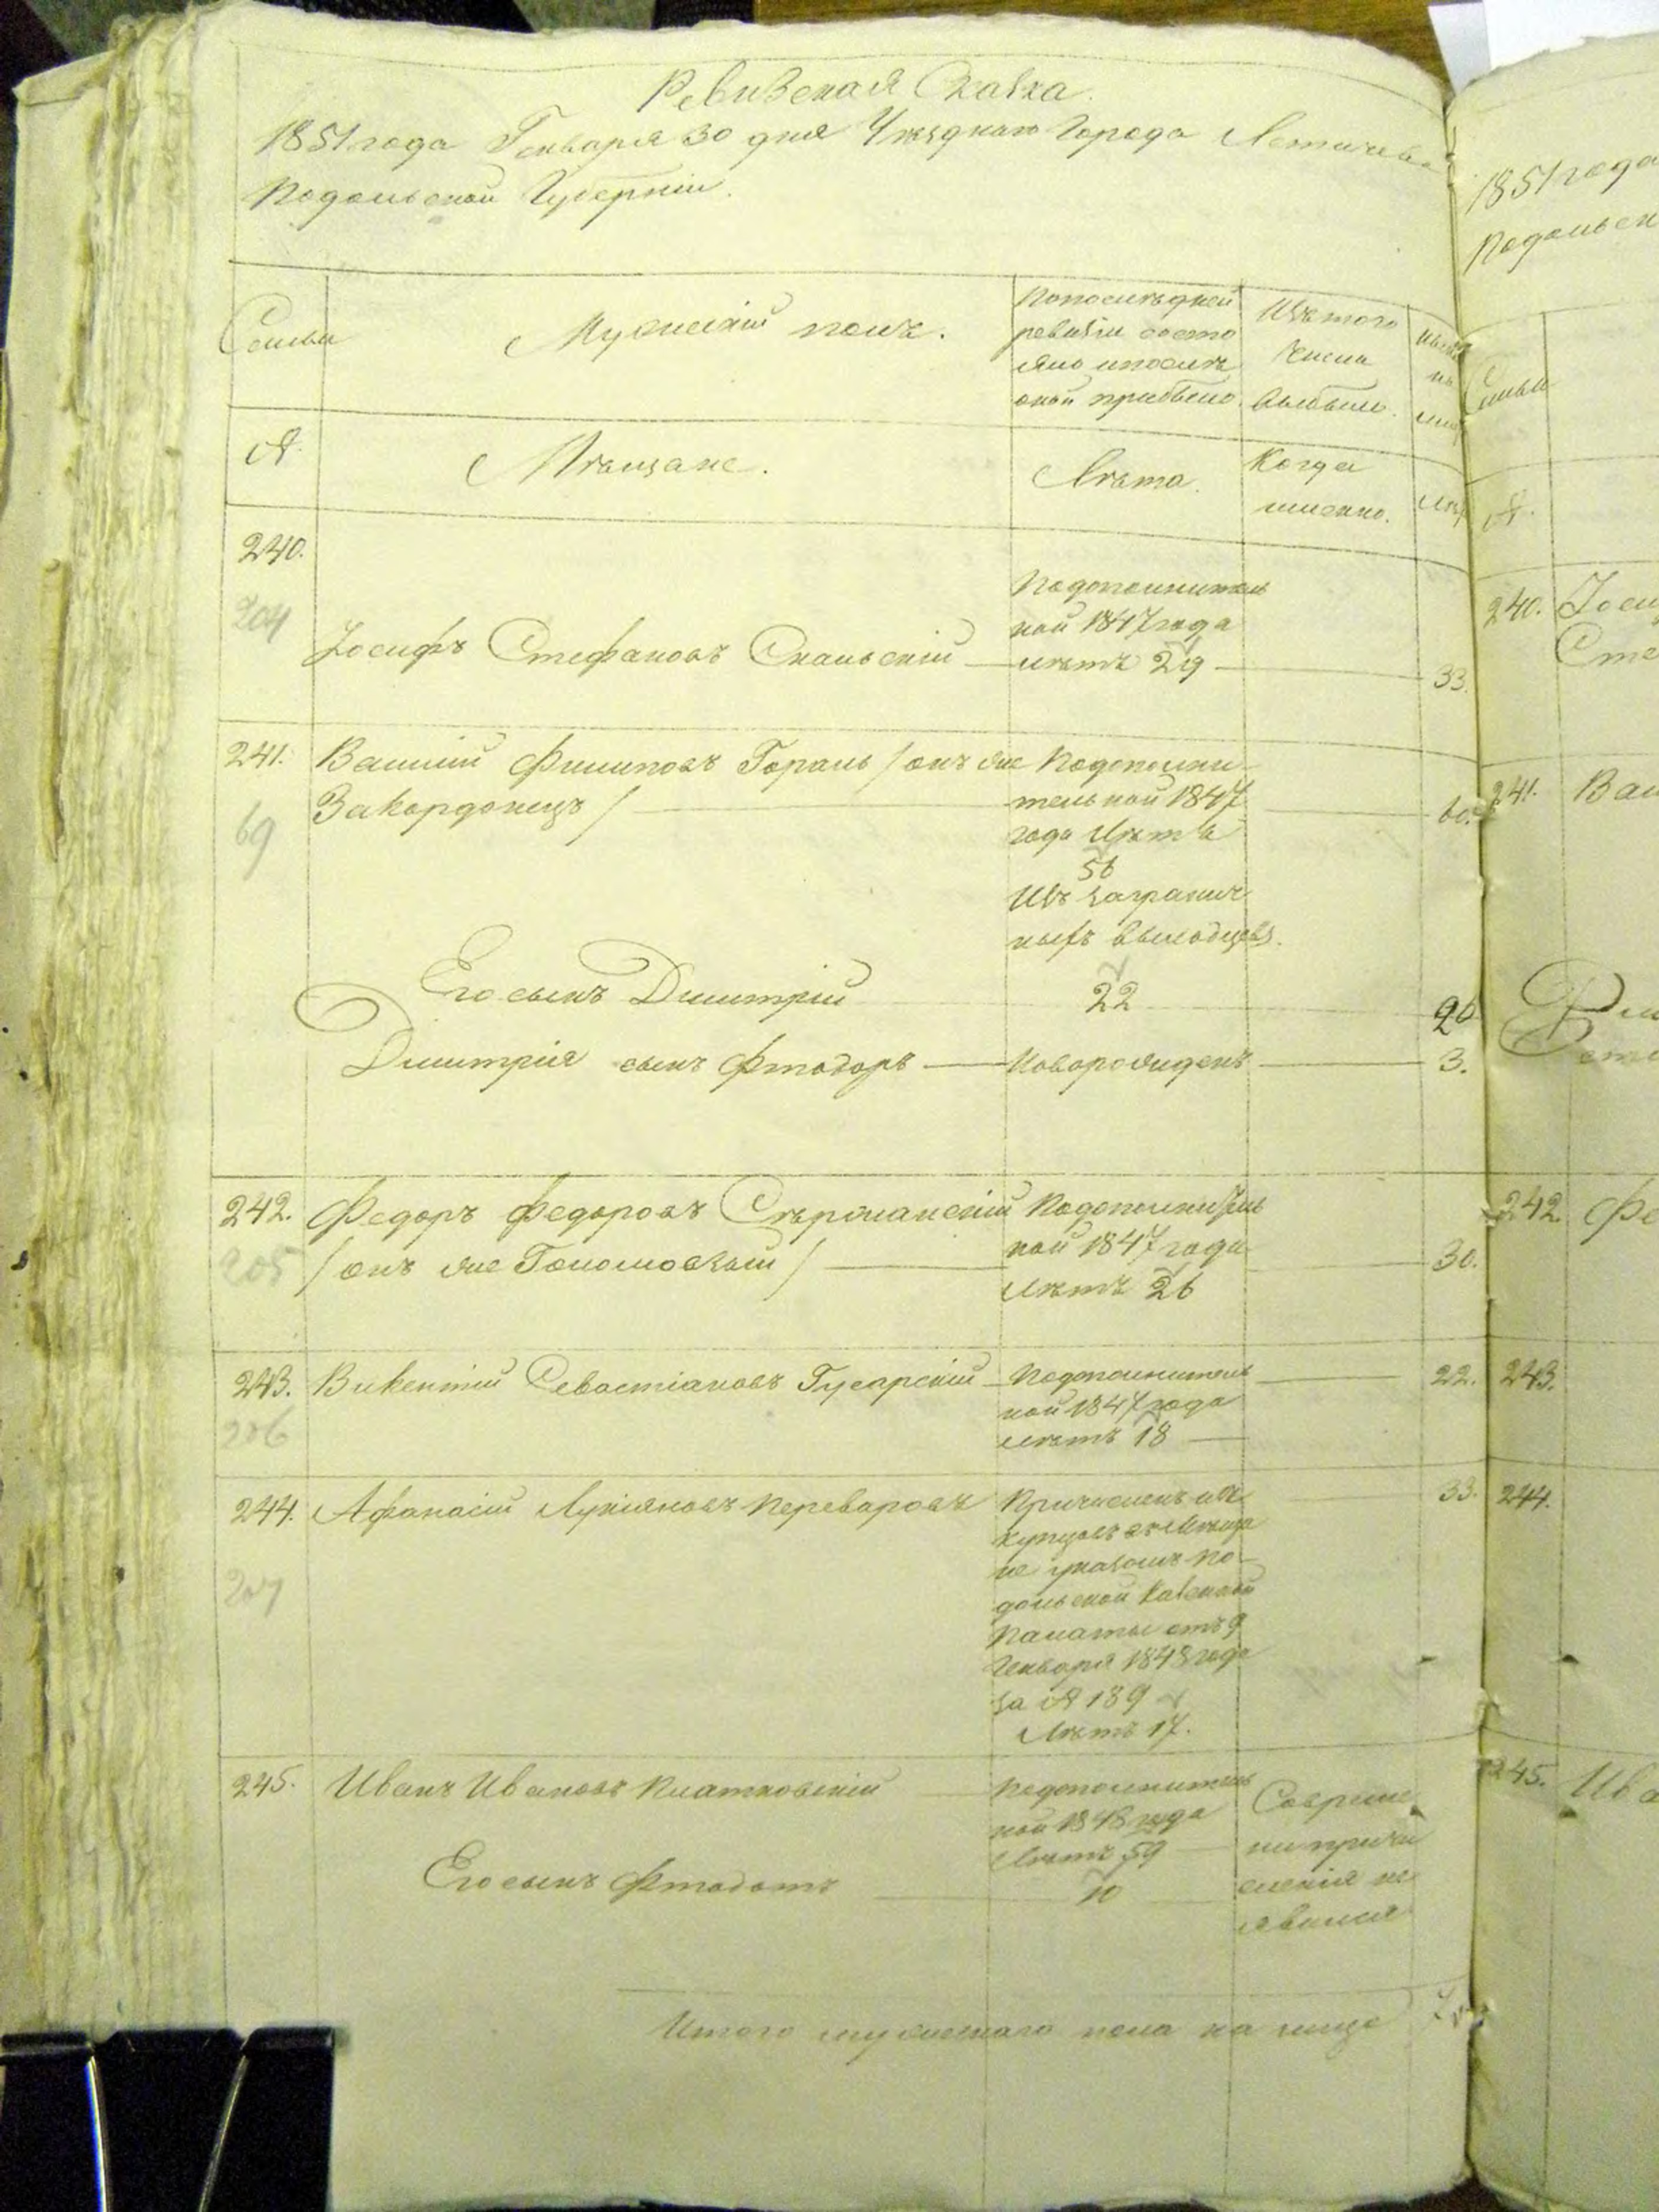 Ревизская Сказка.
1851 года Генваря 30 дня Уезднаго Города Летичева
Подольской Губерніи.
Семьи
Мужескій полъ.
По последней
ревизіи состо
яло и после
оной прибыло.
Изъ того
числа
выбыло.
№.
Мѣщане.
Лѣта.
Когда
именно.
240.
204
Іосифъ Стефановъ Скальскій
По дополнитель
ной 1847 года
лѣтъ 29
33.
241.
69
Василій Филиповъ Гораль / онъ же
Закордонецъ /
По дополни
тельной 1847
года лѣтъ
56
60.
Изъ загранич
ныхъ выходцевъ.
Его сынъ Димитрій
22
26
Димитрія сынъ Фтодоръ
Новорожденъ
3.
242.
205
Федоръ Федоровъ
/ онъ же
По дополнитель
ной 1847 года
лѣтъ 26
30.
243.
206
Викентій Севастіановъ Гусарскій
По дополнитель
ной 1847 года
лѣтъ 18
22.
244.
207
Афанасій Лукіяновъ Переваровъ
Причисленъ изъ
купцовъ въ мѣща
не указомъ По
дольской Казенной
Палаты отъ 9
Генваря 1848 года
за № 189
Лѣтъ 17.
33.
245.
Иванъ Ивановъ Платковскій
По дополнитель
ной 1848 года
Лѣтъ 59
Со времени
причи
сленія не
явился
Его сынъ Фтодотъ
10
Итого мужескаго пола на лице
1851 года
Подольск
Семьи
№.
240.
Іоси
Сте
241.
Вас
242.
Фе
243.
244.
245.
Ива